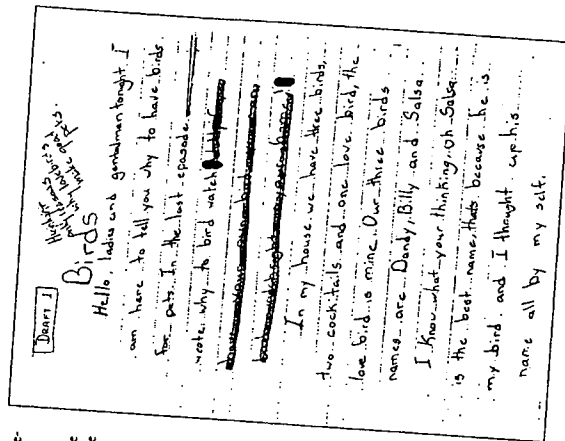 DRAFT 1
pet lovebirds
make good
pets.
Birds
Hello ladies and gentalman tonight I
am here to tell you why to have birds
for pets. In the last epasode
wrote why to bird watch
In my house we have three birds,
two cocktails and one love bird, the
love bird is mine. Our three birds
names are Dandy, Billy and Salsa.
I know what your thinking, oh Salsa
is the best name, thats because he is
my bird and I thought up his
name all by my self.